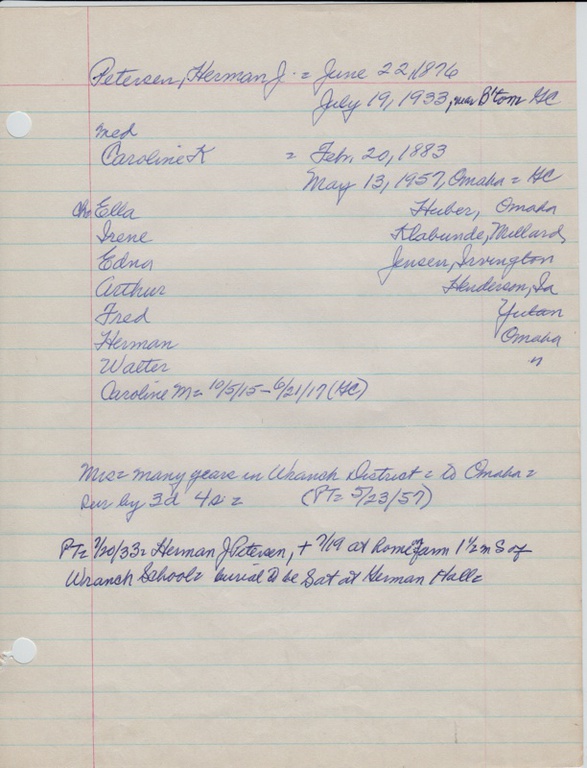 Petersen, Herman J. = June 22, 1876
July 19, 1933, near B'tom GC
med
Caroline K = Feb. 20, 1883
May 13, 1957, Omaha = GC
Ch: Ella Huber, Omaha
Irene Klabunde, Millard,
Edna Jensen, Irvington
Arthur Henderson, Ia
Fred Yutan
Herman Omaha
Walter "
Caroline M = 10/5/15 - 6/21/17 (GC)
Mrs = many years in Wranch District = to Omaha =
sur by 3d 4s = (PT= 5/23/57)
PT= 7/20/33 = Herman J Petersen, + 7/19 at home farm 1 1/2 m S of
Wranch School = burial to be Sat at Herman Hall =